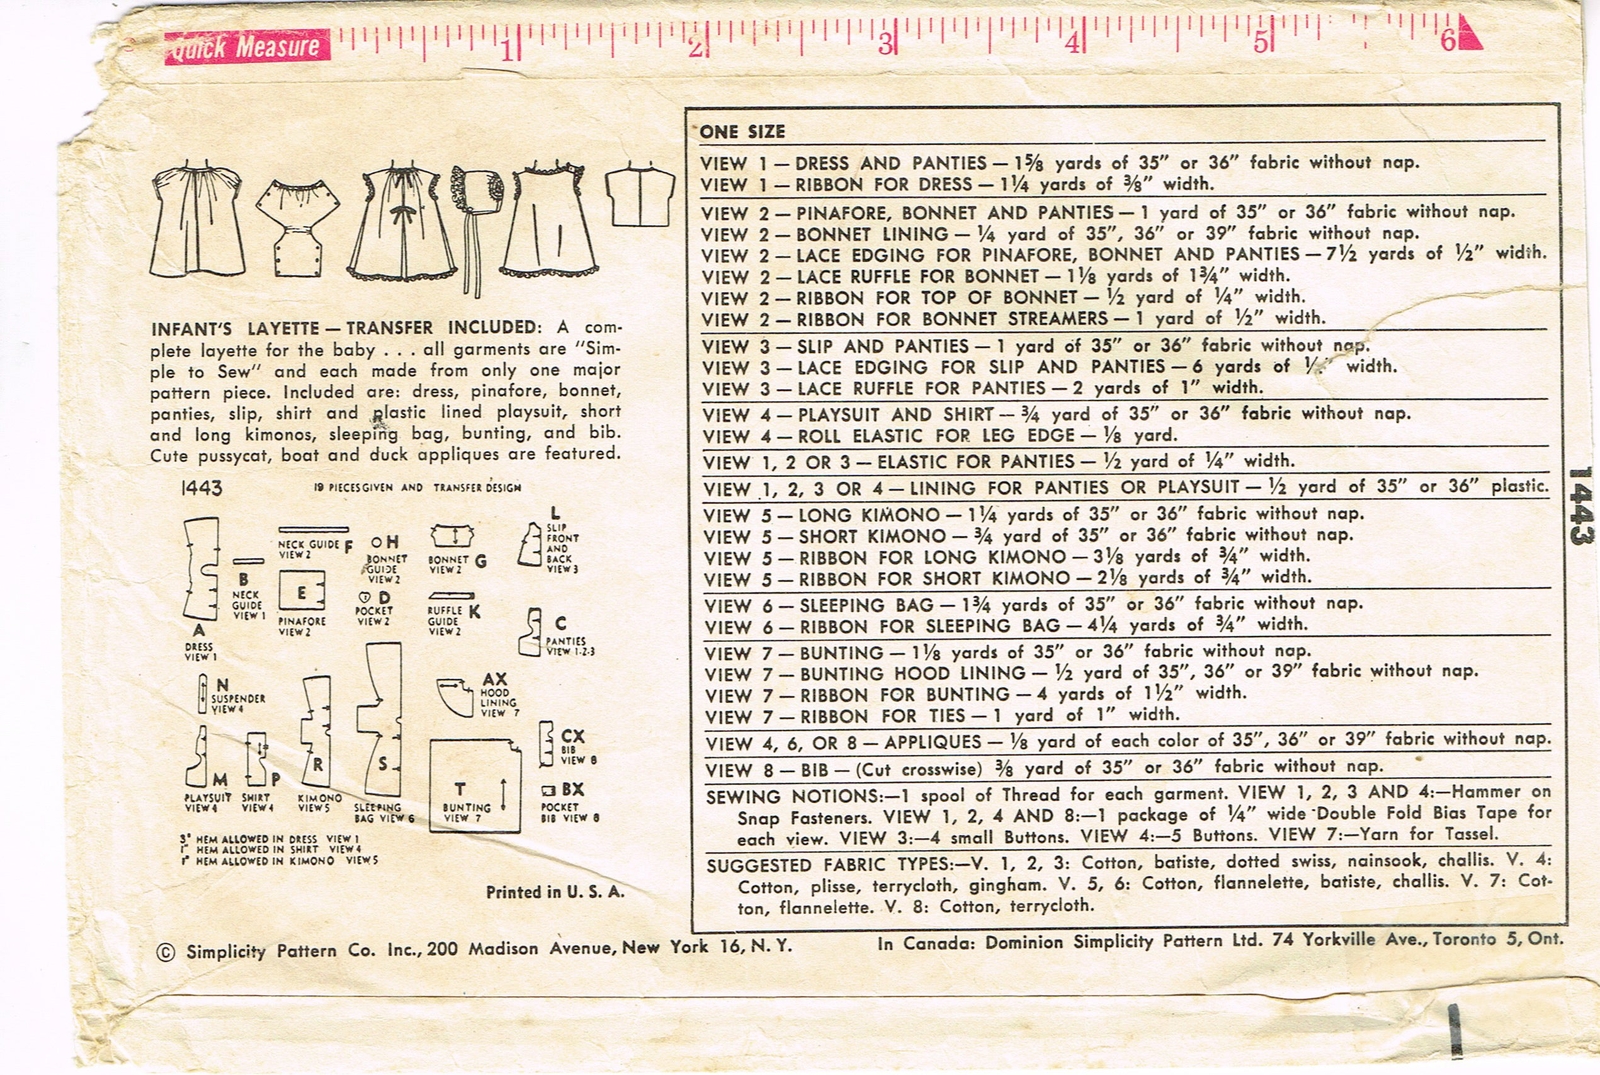 Quick Measure
1 2 3 4 5 6
INFANT'S LAYETTE — TRANSFER INCLUDED: A com-
plete layette for the baby . . . all garments are "Sim-
ple to Sew" and each made from only one major
pattern piece. Included are: dress, pinafore, bonnet,
panties, slip, shirt and plastic lined playsuit, short
and long kimonos, sleeping bag, bunting, and bib.
Cute pussycat, boat and duck appliques are featured.
1443 19 PIECES GIVEN AND TRANSFER DESIGN
A
DRESS
VIEW 1
B
NECK
GUIDE
VIEW 1
NECK GUIDE F
VIEW 2
E
PINAFORE
VIEW 2
H
BONNET
GUIDE
VIEW 2
D
POCKET
VIEW 2
BONNET G
VIEW 2
RUFFLE K
GUIDE
VIEW 2
L
SLIP
FRONT
AND
BACK
VIEW 3
C
PANTIES
VIEW 1-2-3
N
SUSPENDER
VIEW 4
M
PLAYSUIT
VIEW 4
P
SHIRT
VIEW 4
R
KIMONO
VIEW 5
S
SLEEPING
BAG VIEW 6
AX
HOOD
LINING
VIEW 7
T
BUNTING
VIEW 7
CX
BIB
VIEW 8
BX
POCKET
BIB VIEW 8
3" HEM ALLOWED IN DRESS VIEW 1
1" HEM ALLOWED IN SHIRT VIEW 4
1" HEM ALLOWED IN KIMONO VIEW 5
Printed in U. S. A.
ONE SIZE
VIEW 1 — DRESS AND PANTIES — 1⅝ yards of 35" or 36" fabric without nap.
VIEW 1 — RIBBON FOR DRESS — 1¼ yards of ⅜" width.
VIEW 2 — PINAFORE, BONNET AND PANTIES — 1 yard of 35" or 36" fabric without nap.
VIEW 2 — BONNET LINING — ¼ yard of 35", 36" or 39" fabric without nap.
VIEW 2 — LACE EDGING FOR PINAFORE, BONNET AND PANTIES — 7½ yards of ½" width.
VIEW 2 — LACE RUFFLE FOR BONNET — 1⅛ yards of 1¾" width.
VIEW 2 — RIBBON FOR TOP OF BONNET — ½ yard of ¼" width.
VIEW 2 — RIBBON FOR BONNET STREAMERS — 1 yard of ½" width.
VIEW 3 — SLIP AND PANTIES — 1 yard of 35" or 36" fabric without nap.
VIEW 3 — LACE EDGING FOR SLIP AND PANTIES — 6 yards of width.
VIEW 3 — LACE RUFFLE FOR PANTIES — 2 yards of 1" width.
VIEW 4 — PLAYSUIT AND SHIRT — ¾ yard of 35" or 36" fabric without nap.
VIEW 4 — ROLL ELASTIC FOR LEG EDGE — ⅛ yard.
VIEW 1, 2 OR 3 — ELASTIC FOR PANTIES — ½ yard of ¼" width.
VIEW 1, 2, 3 OR 4 — LINING FOR PANTIES OR PLAYSUIT — ½ yard of 35" or 36" plastic.
VIEW 5 — LONG KIMONO — 1¼ yards of 35" or 36" fabric without nap.
VIEW 5 — SHORT KIMONO — ¾ yard of 35" or 36" fabric without nap.
VIEW 5 — RIBBON FOR LONG KIMONO — 3⅛ yards of ¾" width.
VIEW 5 — RIBBON FOR SHORT KIMONO — 2⅛ yards of ¾" width.
VIEW 6 — SLEEPING BAG — 1¾ yards of 35" or 36" fabric without nap.
VIEW 6 — RIBBON FOR SLEEPING BAG — 4¼ yards of ¾" width.
VIEW 7 — BUNTING — 1⅛ yards of 35" or 36" fabric without nap.
VIEW 7 — BUNTING HOOD LINING — ½ yard of 35", 36" or 39" fabric without nap.
VIEW 7 — RIBBON FOR BUNTING — 4 yards of 1½" width.
VIEW 7 — RIBBON FOR TIES — 1 yard of 1" width.
VIEW 4, 6, OR 8 — APPLIQUES — ⅛ yard of each color of 35", 36" or 39" fabric without nap.
VIEW 8 — BIB — (Cut crosswise) ⅜ yard of 35" or 36" fabric without nap.
SEWING NOTIONS:—1 spool of Thread for each garment. VIEW 1, 2, 3 AND 4:—Hammer on
Snap Fasteners. VIEW 1, 2, 4 AND 8:—1 package of ¼" wide Double Fold Bias Tape for
each view. VIEW 3:—4 small Buttons. VIEW 4:—5 Buttons. VIEW 7:—Yarn for Tassel.
SUGGESTED FABRIC TYPES:—V. 1, 2, 3: Cotton, batiste, dotted swiss, nainsook, challis. V. 4:
Cotton, plisse, terrycloth, gingham. V. 5, 6: Cotton, flannelette, batiste, challis. V. 7: Cot-
ton, flannelette. V. 8: Cotton, terrycloth.
1443
© Simplicity Pattern Co. Inc., 200 Madison Avenue, New York 16, N. Y.
In Canada: Dominion Simplicity Pattern Ltd. 74 Yorkville Ave., Toronto 5, Ont.